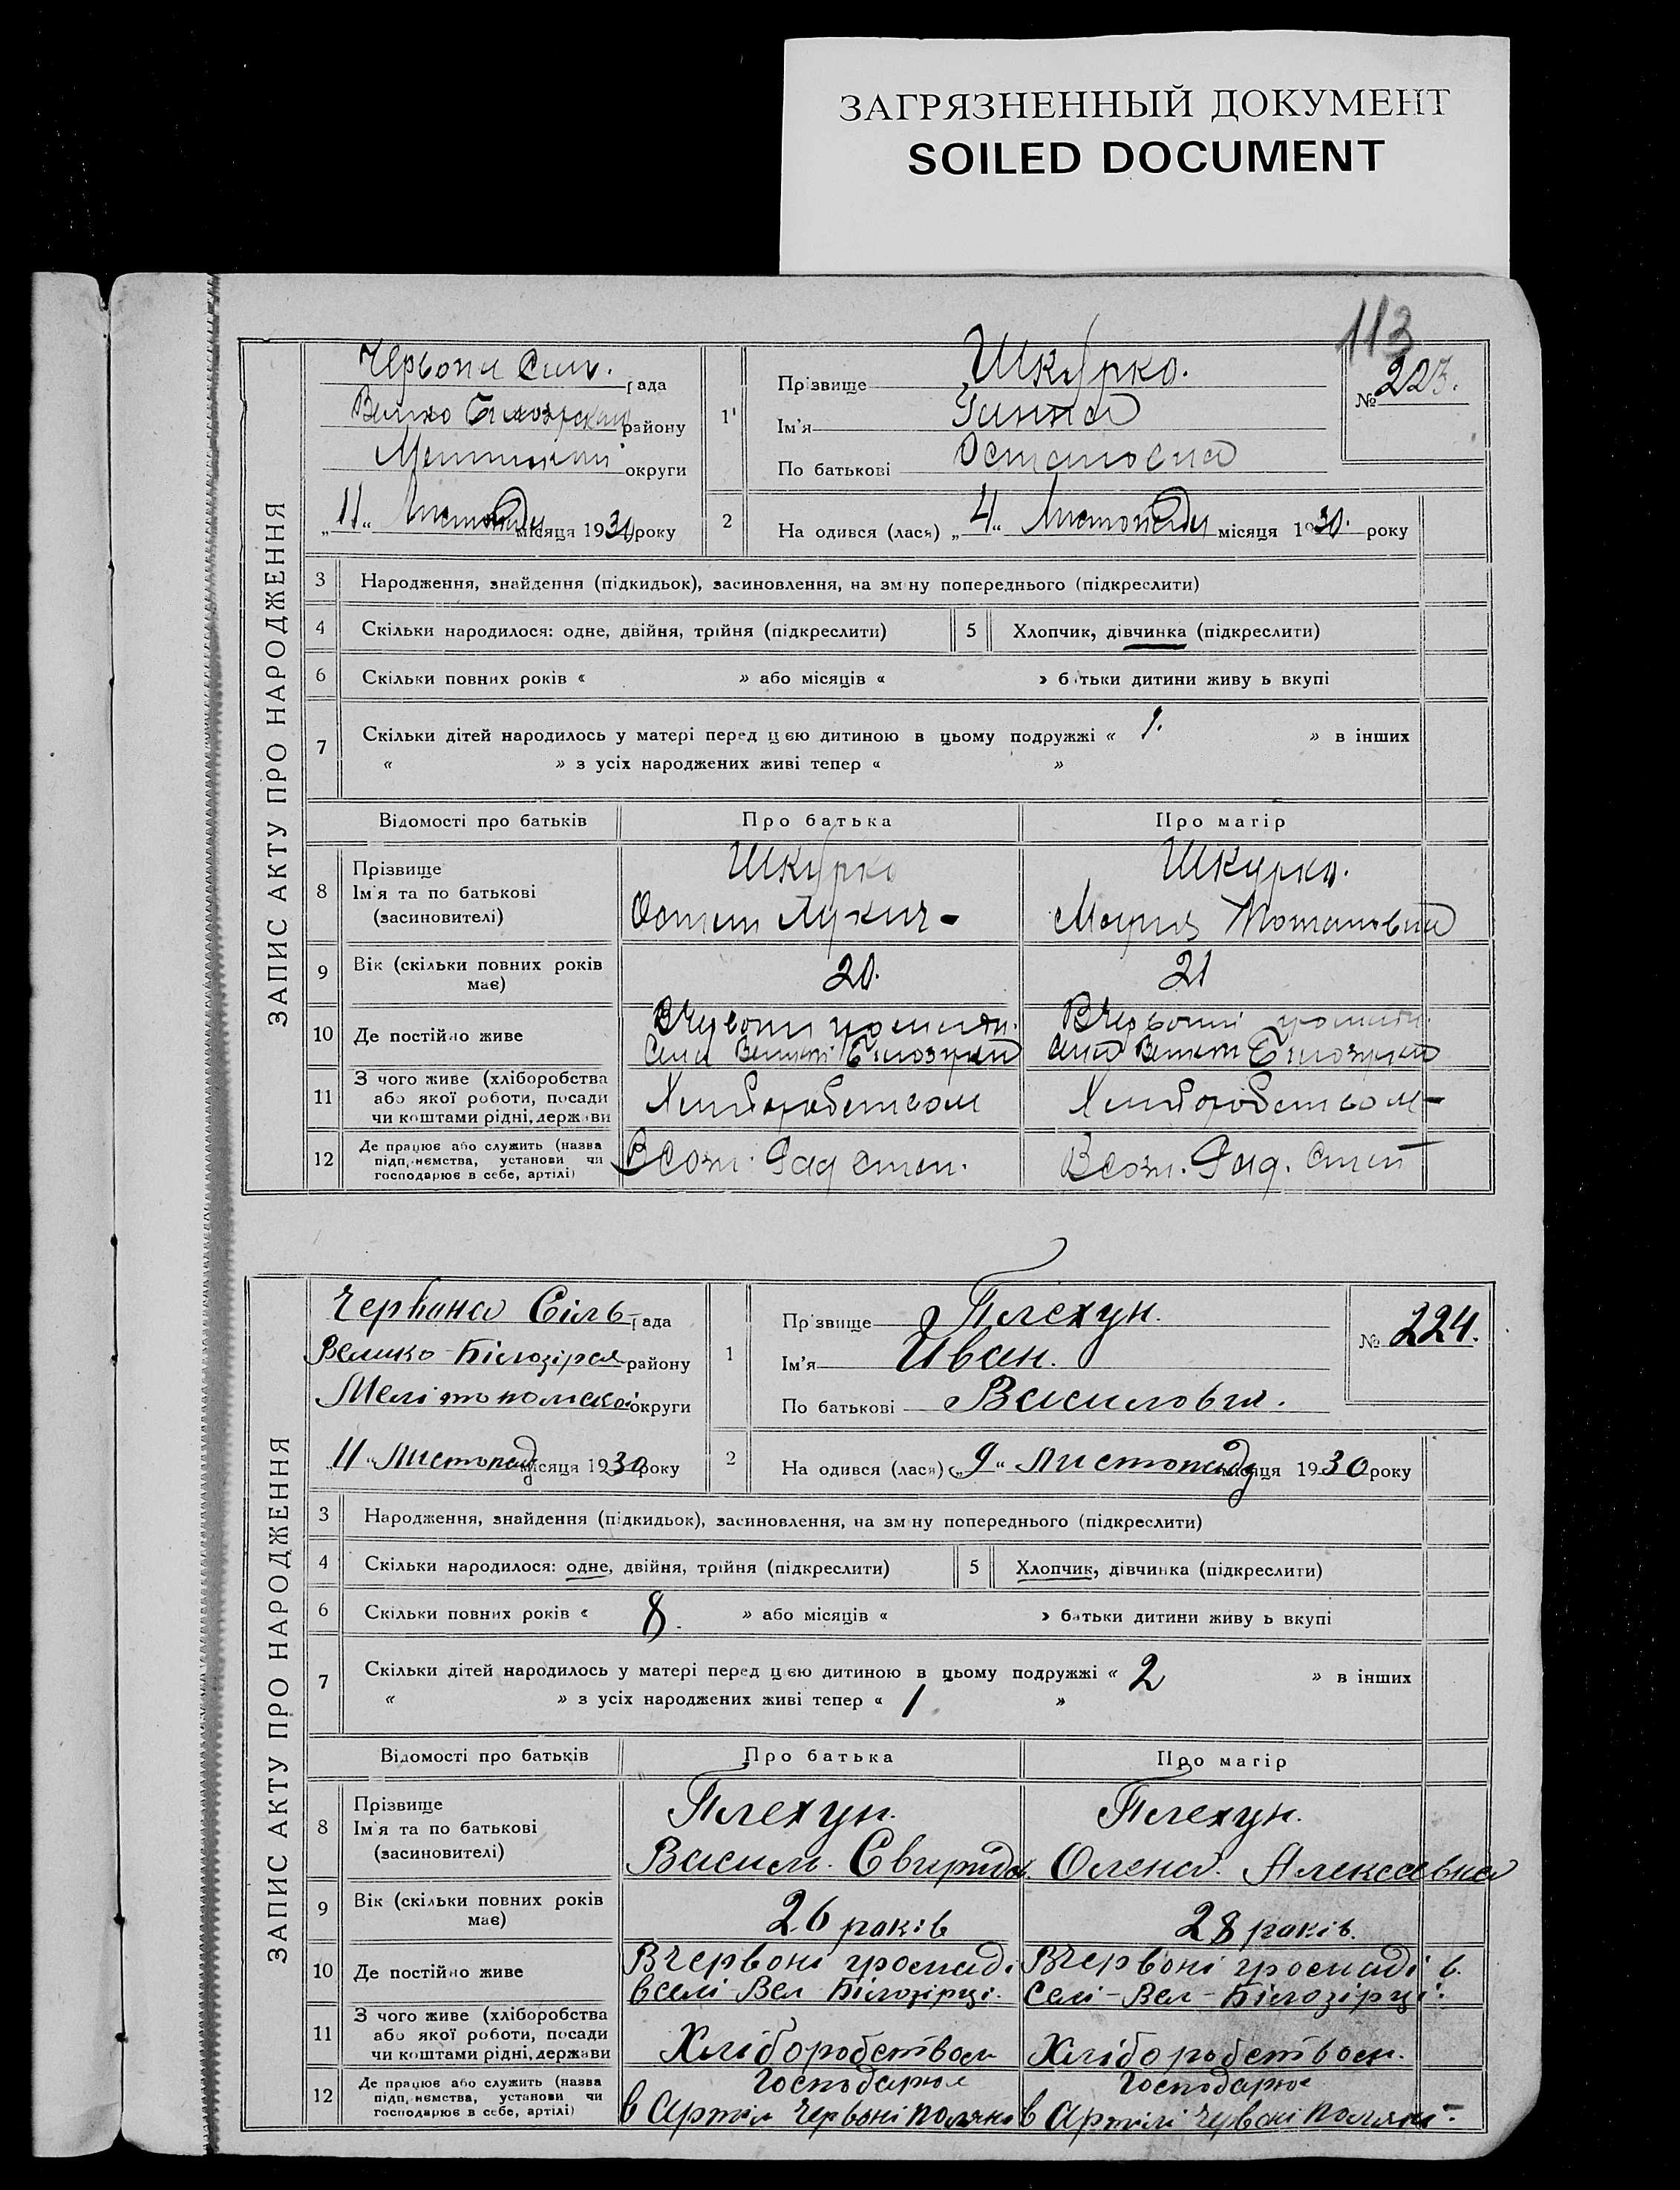 ЗАГРЯЗНЕННЫЙ ДОКУМЕНТ
SOILED DOCUMENT
113
ЗАПИС АКТУ ПРО НАРОДЖЕННЯ
рада
району
округи
"11" Листопаду місяця 1930 року
1 Прізвище Шкурко.
Ім'я Ганна
По батькові Остаповна
№ 223.
2 Народився (лася) "4" Листопаду місяця 1930. року
3 Народження, знайдення (підкидьок), засиновлення, на зміну попереднього (підкреслити)
4 Скільки народилося: одне, двійня, трійня (підкреслити) 5 Хлопчик, дівчинка (підкреслити)
6 Скільки повних років « » або місяців « » батьки дитини живуть вкупі
7 Скільки дітей народилось у матері перед цією дитиною в цьому подружжі « 1. » в інших
« » з усіх народжених живі тепер « »
Відомості про батьків Про батька Про матір
8 Прізвище Шкурко Шкурко.
Ім'я та по батькові
(засиновителі) Остап Лукич - Мария Потаповна
9 Вік (скільки повних років має) 20. 21
10 Де постійно живе
11 З чого живе (хліборобства
або якої роботи, посади
чи коштами рідні, держави Хлиборобством Хлиборобством -
12 Де працює або служить (назва
підприємства, установи чи
господарює в себе, артілі) В Созн. Рад. степ. В Созн. Рад. степ
ЗАПИС АКТУ ПРО НАРОДЖЕННЯ
Червона Сіль рада
Велико-Білозірся району
Мелітопольскої округи
"11" Листопад місяця 1930 року
1 Прізвище Плехун.
Ім'я Иван.
По батькові Василович.
№ 224.
2 Народився (лася) "9" листопаду місяця 1930 року
3 Народження, знайдення (підкидьок), засиновлення, на зміну попереднього (підкреслити)
4 Скільки народилося: одне, двійня, трійня (підкреслити) 5 Хлопчик, дівчинка (підкреслити)
6 Скільки повних років « 8. » або місяців « » батьки дитини живуть вкупі
7 Скільки дітей народилось у матері перед цією дитиною в цьому подружжі « 2 » в інших
« » з усіх народжених живі тепер « 1 »
Відомості про батьків Про батька Про матір
8 Прізвище Плехун. Плехун.
Ім'я та по батькові
(засиновителі) Василь Свирид. Олена Алексеевна
9 Вік (скільки повних років має) 26 років 28 років.
10 Де постійно живе Вчервоні громаді Вчервоні громаді в.
вселі Вел Білозірці. Селі-Вел-Білозірці.
11 З чого живе (хліборобства
або якої роботи, посади
чи коштами рідні, держави Хліборобством Хліборобством.
12 Де працює або служить (назва
підприємства, установи чи
господарює в себе, артілі) Господарює Господарює
в Артілі Червоні поляні в Артілі Червоні поляні.